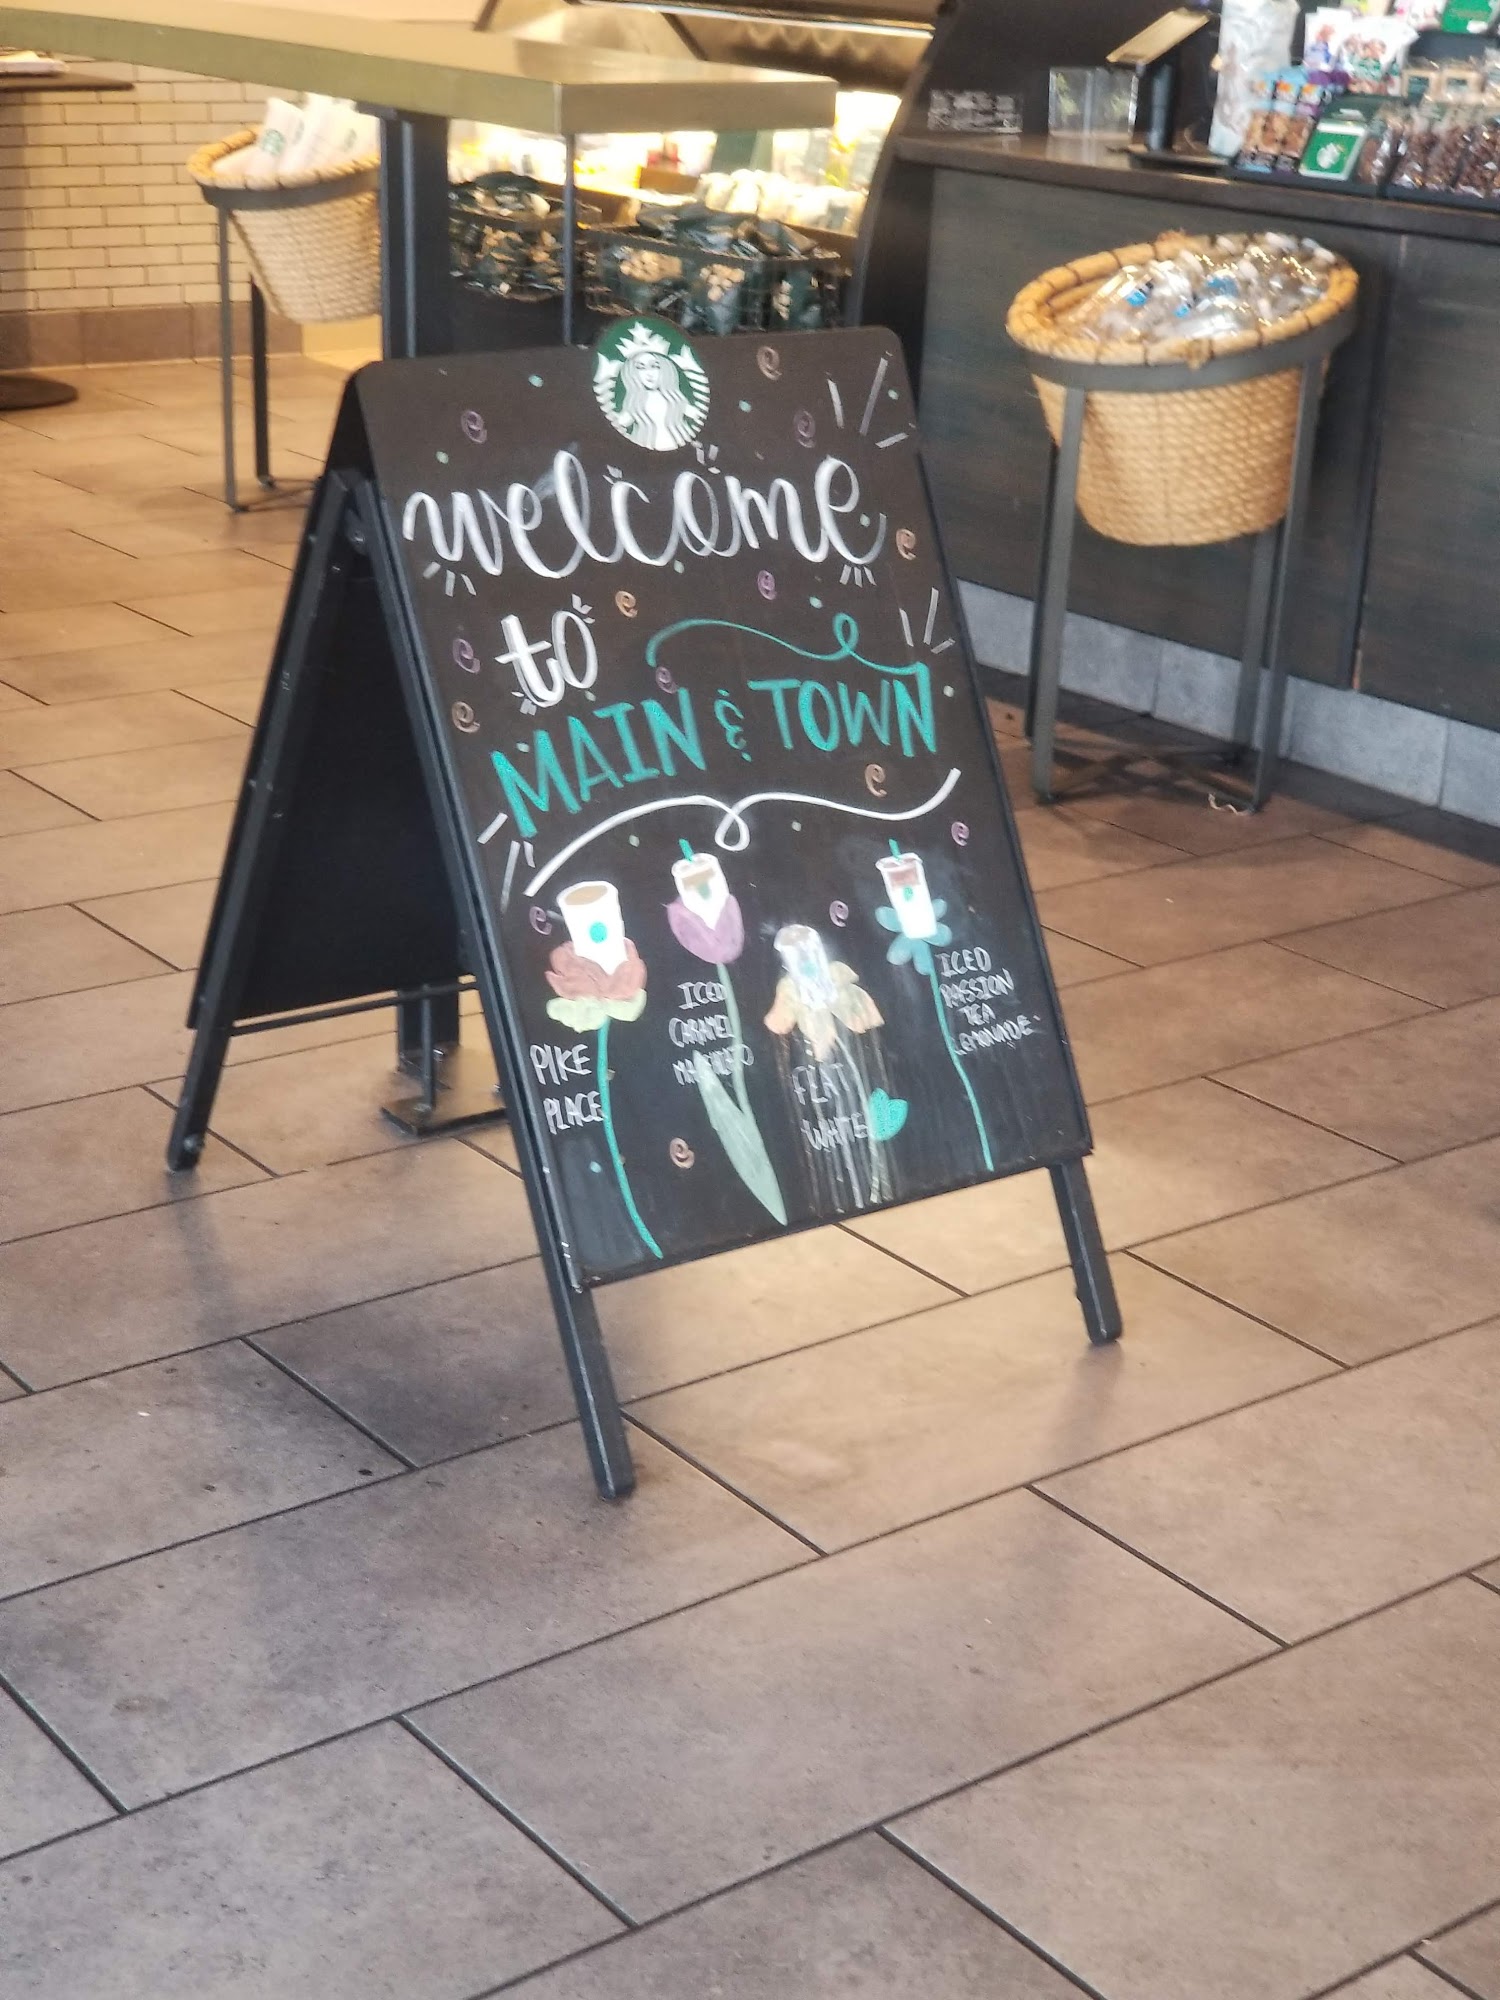 welcome
to
MAIN & TOWN
PIKE
PLACE
ICED
CARAMEL
MACCHIATO
FLAT
WHITE
ICED
PASSION
TEA
LEMONADE